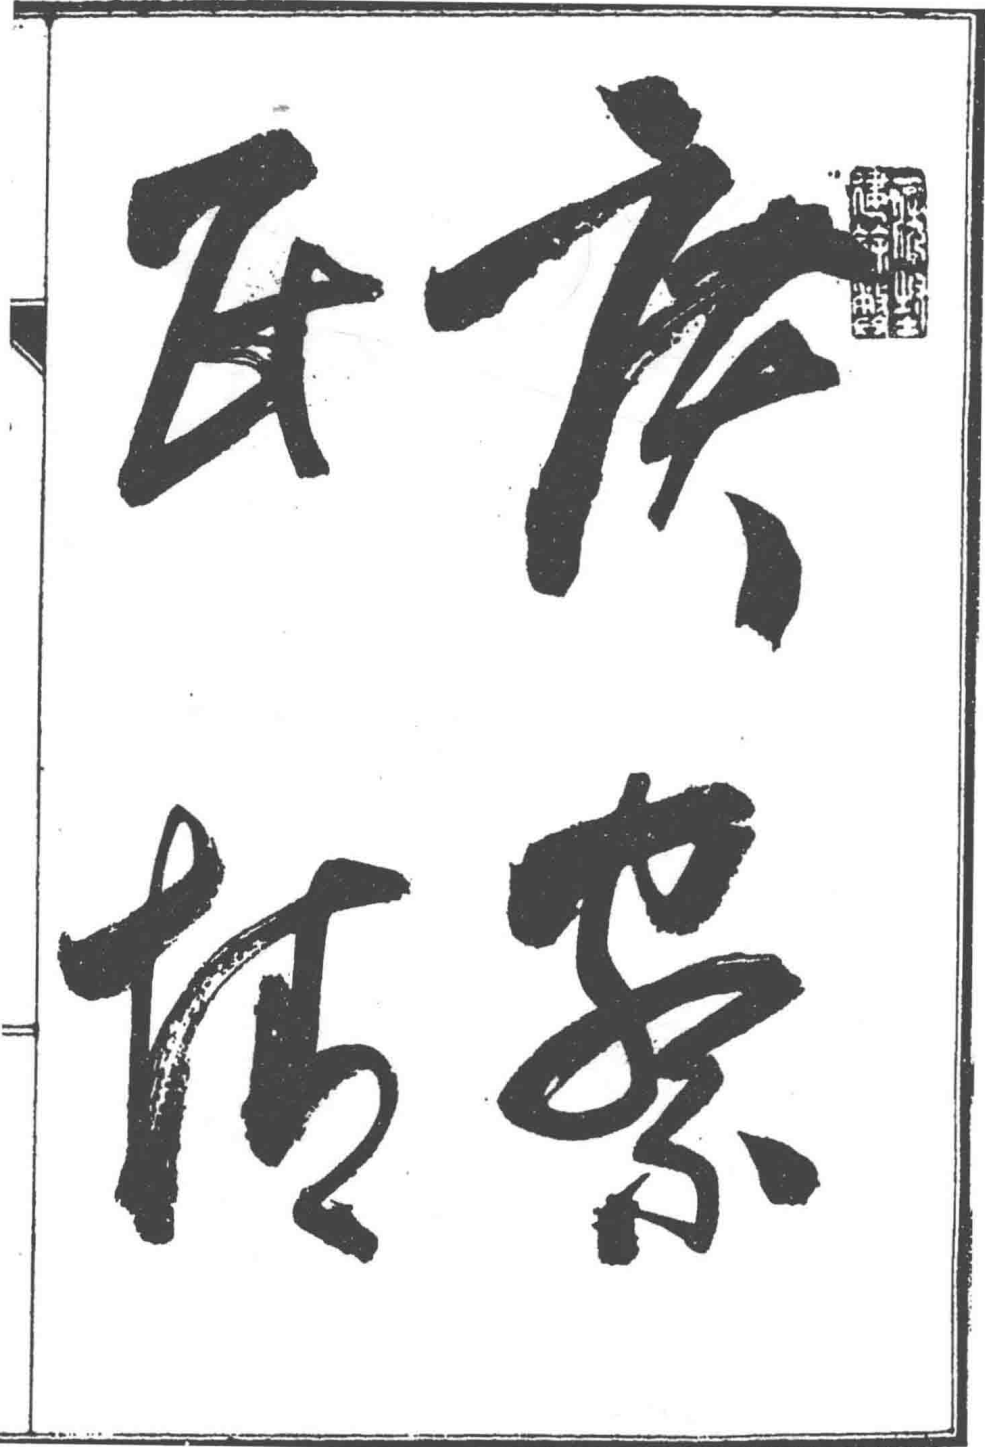 廣察
民情